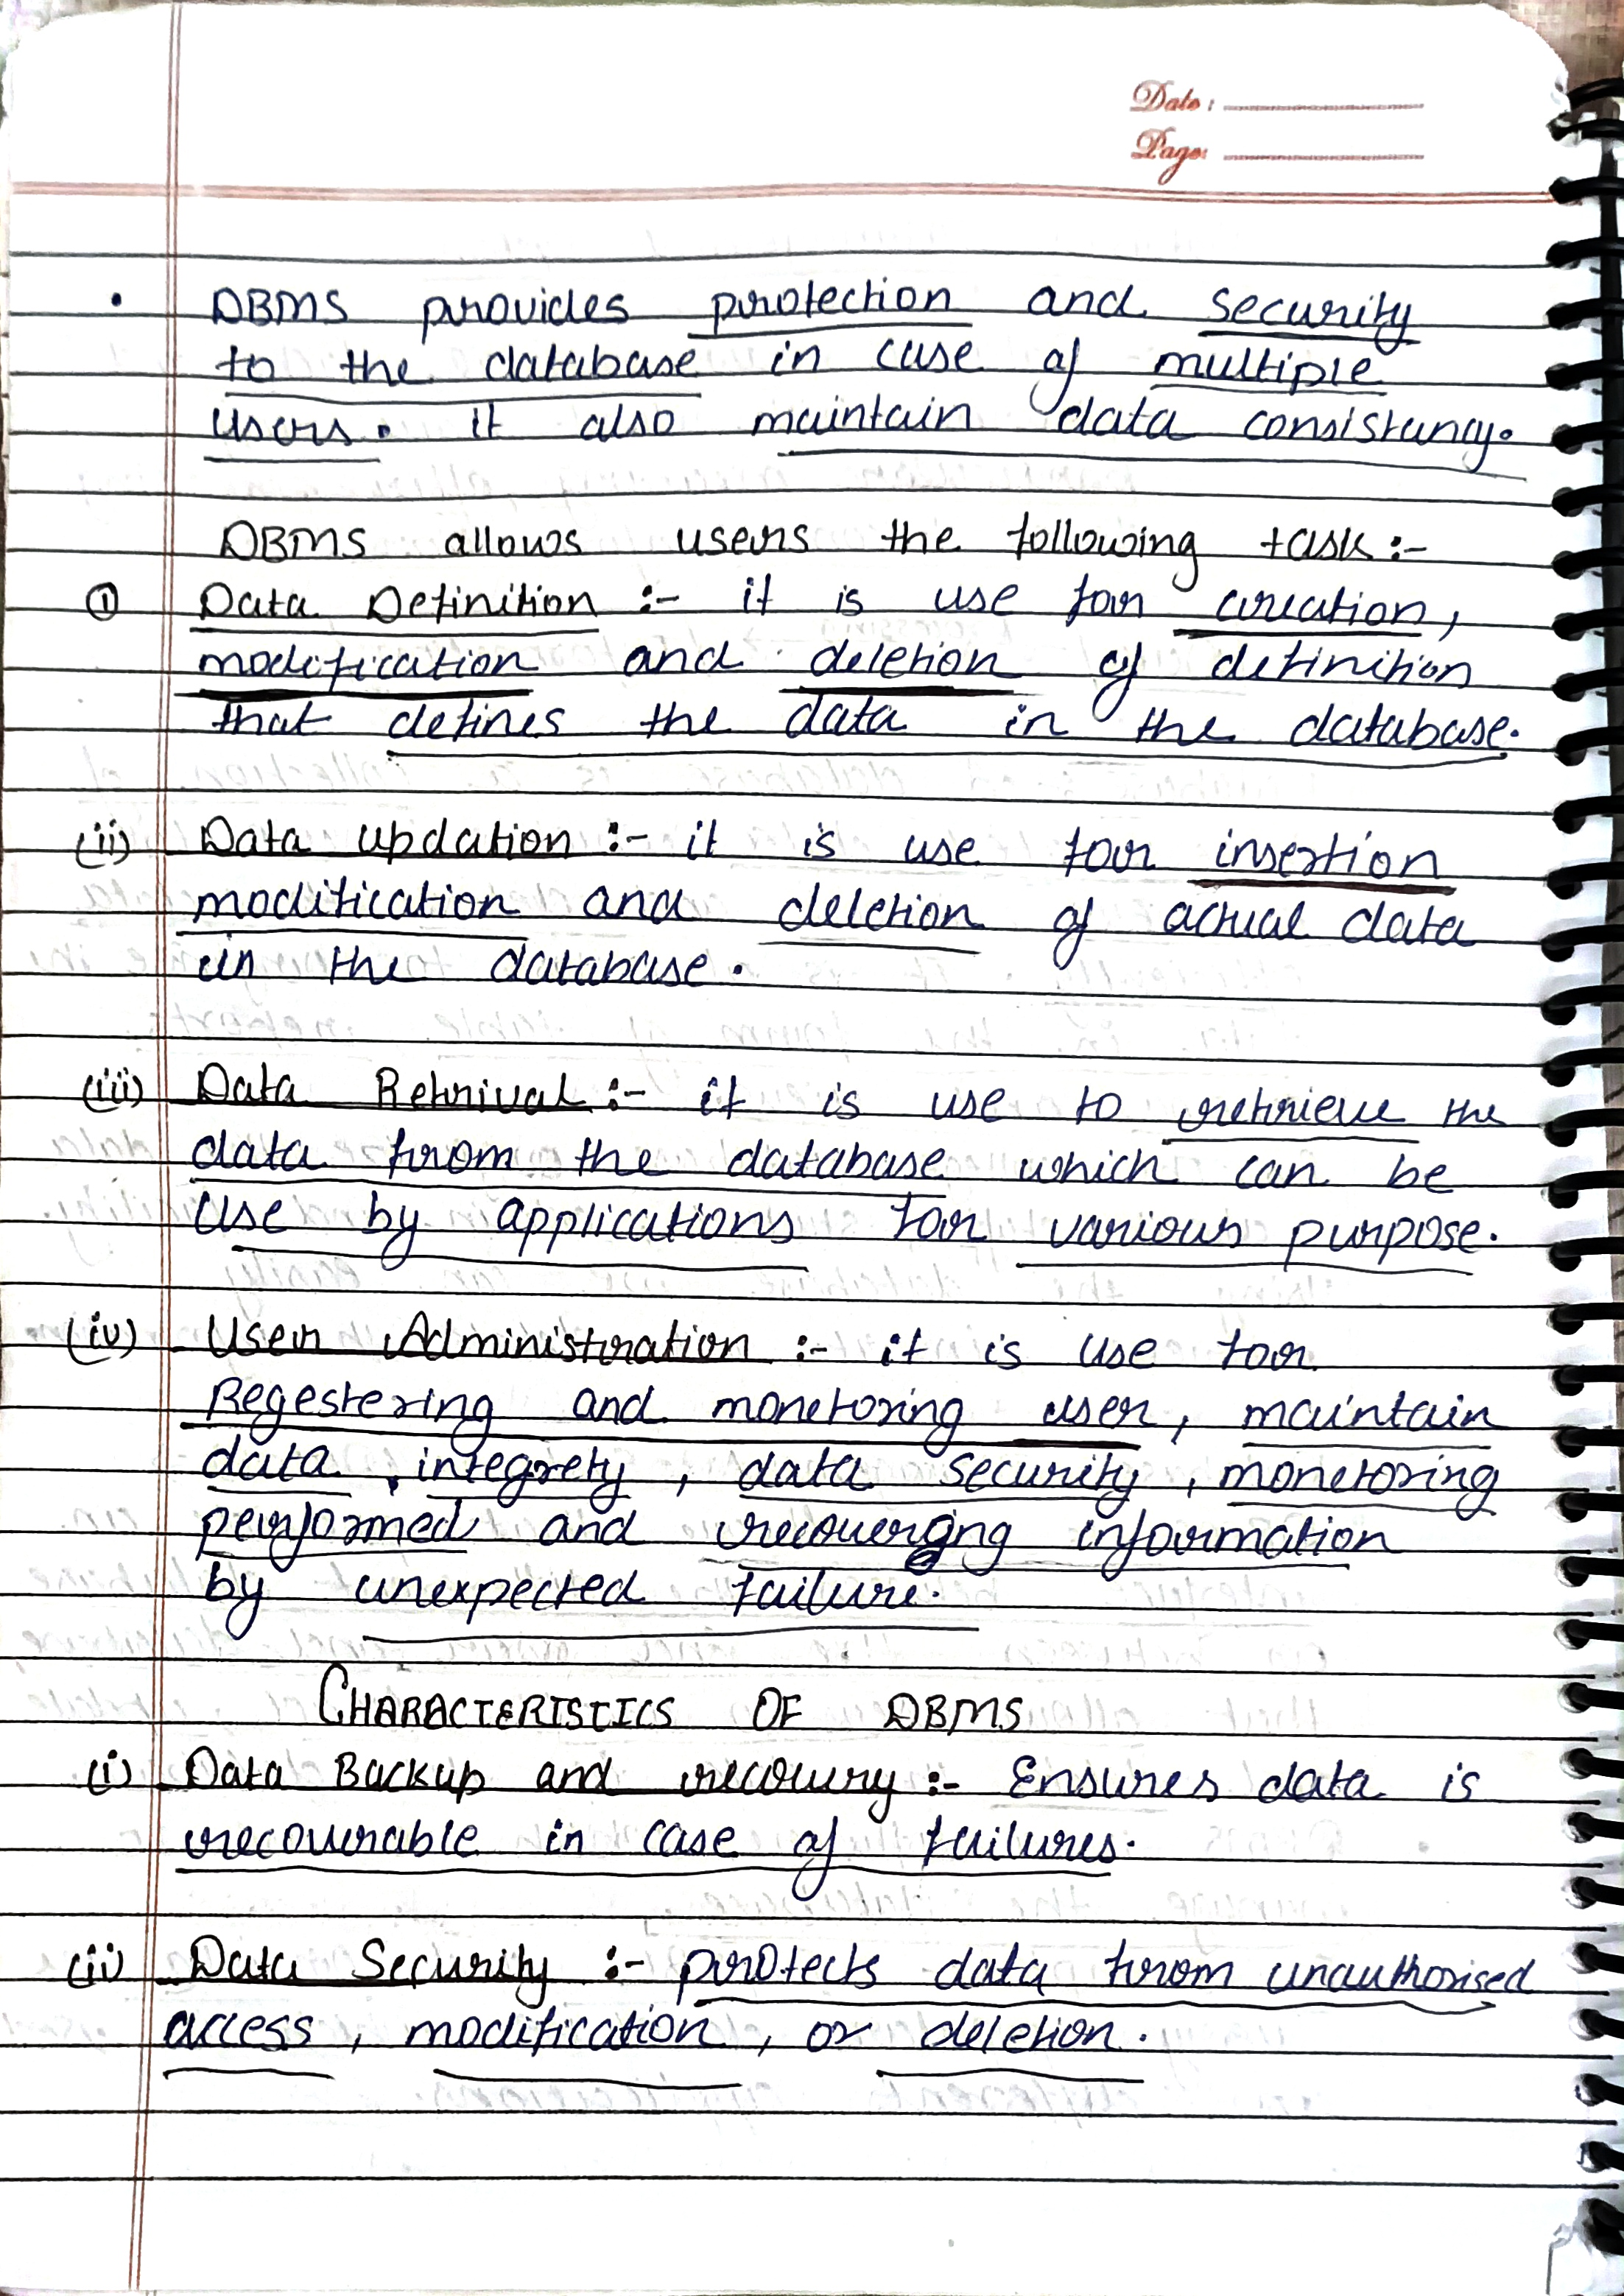 Date:
Page:
• DBMS provides protection and security
to the database in case of multiple
users. it also maintain data consistancy.
DBMS allows users the following task :-
(i) Data Definition :- it is use for creation,
modification and deletion of definition
that defines the data in the database.
(ii) Data updation :- it is use for insertion
modification and deletion of actual data
in the database.
(iii) Data Retrival :- it is use to retrieve the
data from the database which can be
use by applications for various purpose.
(iv) User Administration :- it is use for
Regestering and monetoring user, maintain
data, integrety, data security, monetoring
performed and recovering information
by unexpected failure.
CHARACTERISTICS OF DBMS
(i) Data Backup and recovery :- Ensures data is
recoverable in case of failures.
(ii) Data Security :- protects data from unauthorised
access, modification, or deletion.